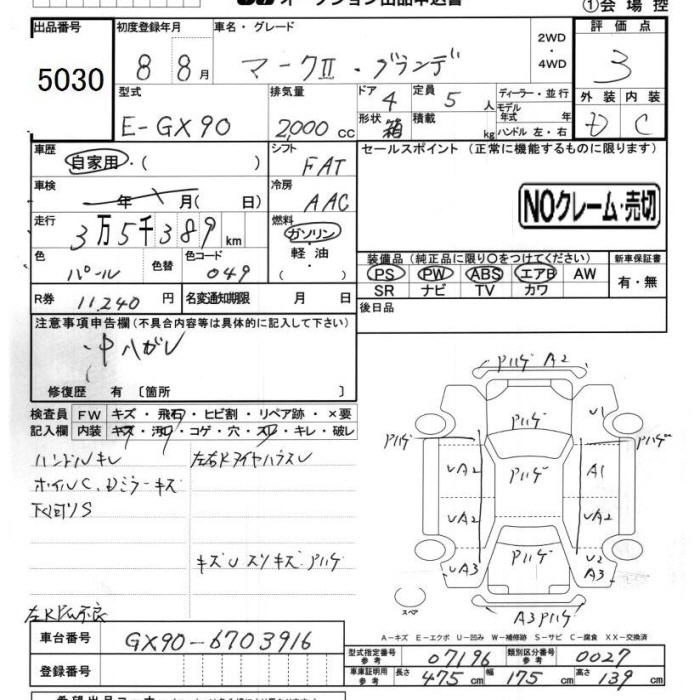 オークション出品申込書 ①会場控
出品番号 初度登録年月 車名・グレード 2WD・4WD 評価点
5030 8 8月 マークⅡ・グランデ 3
型式 排気量 ドア 4 定員 5 人 ディーラー・並行 外装 内装
E-GX90 2,000 cc 形状 箱 積載 kg モデル年式 年 ハンドル 左・右 D C
車歴 自家用・( ) シフト FAT セールスポイント(正常に機能するものに限ります)
車検 年 月(日) 冷房 AAC
NOクレーム・売切
走行 3万5千389km 燃料 ガソリン・軽油・( )
色 パール 色替 色コード 049
装備品(純正品に限り〇をつけてください) 新車保証書
PS PW ABS エアB AW 有・無
SR ナビ TV カワ
R券 11,240円 名変通知期限 月 日 後日品
注意事項申告欄(不具合内容等は具体的に記入して下さい)
中ハガレ
修復歴 有〔箇所 〕
検査員 FW キズ・飛石・ヒビ割・リペア跡・×要
記入欄 内装 キズ・汚れ・コゲ・穴・スレ・キレ・破レ
ハンドルキレ 左右Rタイヤハウス U
ホイルC、Dミラーキズ
下回りS
キズUスリキズ、Pハゲ
左R PW不良
Pハゲ A2
Pハゲ U1
Pハゲ Pハゲ Pハゲ
UA2 A1
UA2 UA2
Pハゲ U2
UA3 A3
スペア A3 Pハゲ
A-キズ E-エクボ U-凹み W-補修跡 S-サビ C-腐食 XX-交換済
車台番号 GX90-6703916
型式指定番号 参考 07196 類別区分番号 参考 0027
登録番号 車庫証明用 参考 長さ 475cm 幅 175cm 高さ 139cm